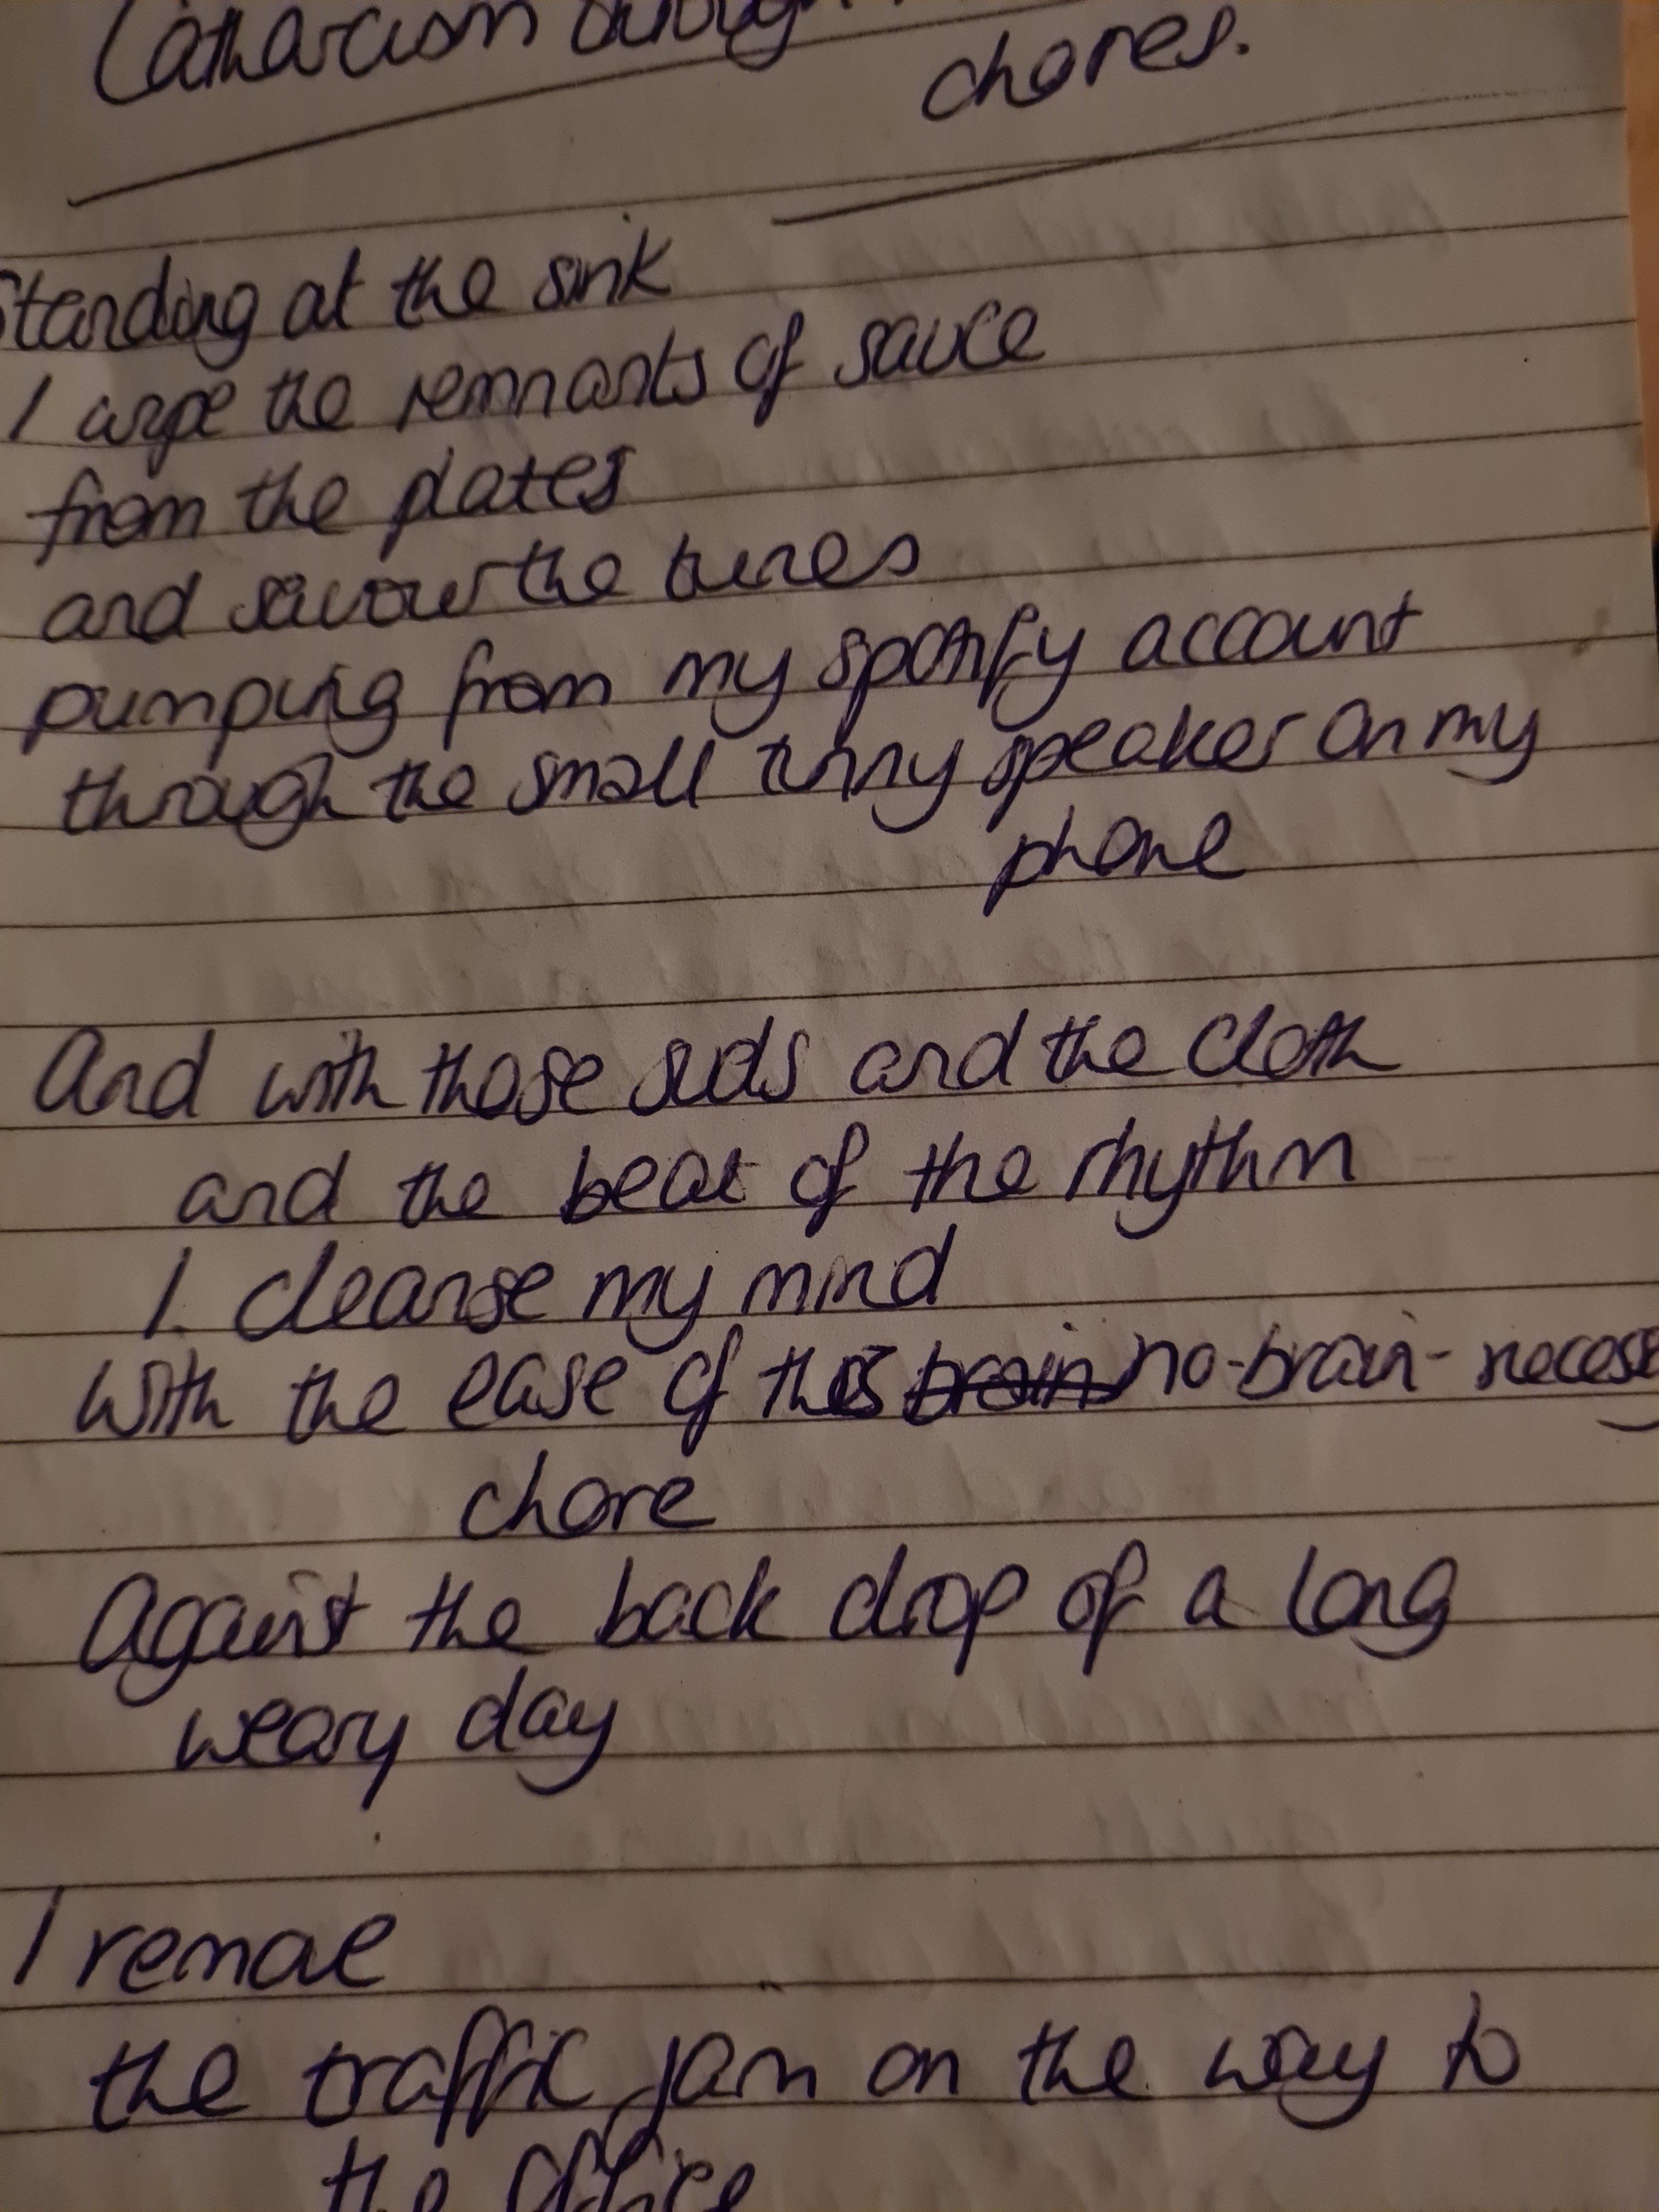 Catharcism through
chores.
Standing at the sink
I wipe the remnants of sauce
from the plates
and savour the tunes
pumping from my spotify account
through the small tinny speaker on my
phone
And with those suds and the cloth
and the beat of the rhythm
I cleanse my mind
with the ease of this brain no-brain-necess
chore
Against the back drop of a long
weary day
I remove
the traffic jam on the way to
the office